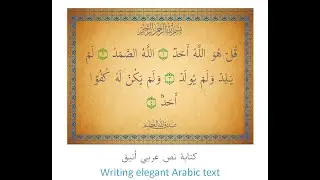 بسم الله الرحمن الرحيم
قُلْ هُوَ اللَّهُ أَحَدٌ ۝١ اللَّهُ الصَّمَدُ ۝٢ لَمْ
يَلِدْ وَلَمْ يُولَدْ ۝٣ وَلَمْ يَكُنْ لَهُ كُفُوًا
أَحَدٌ ۝٤
صدق الله العظيم
كتابة نص عربي أنيق
Writing elegant Arabic text